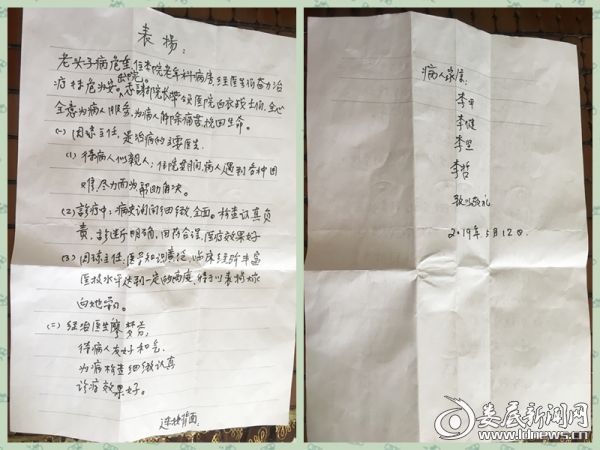 表扬:
老头子病危重,住本院老年科病房,经医生们奋力治
疗转危为安。
出院。
感谢院长带领医院白衣战士们,全心
全意为病人服务,为病人解除痛苦,挽回生命。
(一) 周 主任,是治病的主要医生。
(1) 待病人似亲人;住院期间,病人遇到各种困
难,尽力而为帮助解决。
(2) 診疗中:病史询问细致、全面。检查认真负
责,診断明确,用药合理,医疗效果好
(3) 周 主任,医学知识广泛,临床经验丰富
医技水平达到一定的高度,得予以表扬大家
向她学习。
(二) 经治医生廖梦
待病人友好和气.
为病检查细致认真
诊疗效果好。
连接背面
病人家属:
李
李健
李
李哲
致以敬礼
2019年5月12日.
娄底新闻网
www.ldnews.cn